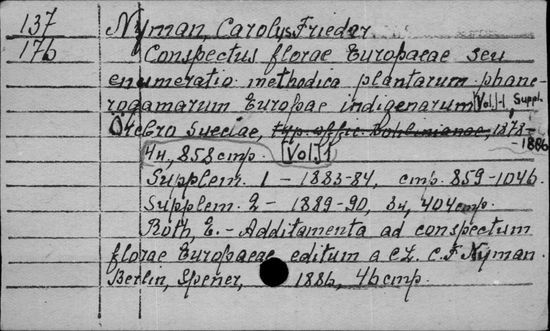 137 Nyman, Carolus Frieder
176 Conspectus florae Europaeae seu
enumeratio methodica plantarum phane-
rogamarum Europae indigenarum [Vol.]-1, Suppl.
Örebro Sueciae, typ. offic. Bohlinianae, 1878-
-1886
4н, 858 стр. [Vol.]1
Supplem. 1 - 1883-84, стр. 859-1046.
Supplem. 2 - 1889-90, 3н, 404 стр.
Roth, E. - Additamenta ad conspectum
florae Europaeae editum a cl. C. F. Nyman.
Berlin, Spener, 1886, 46 стр.